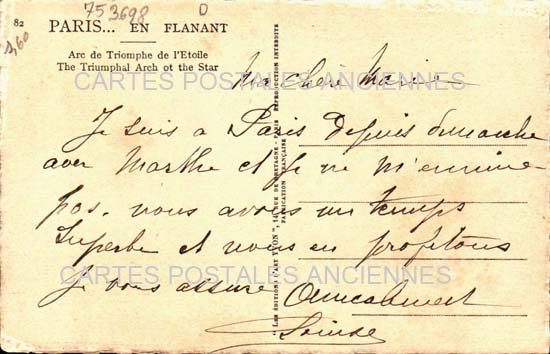 753698 D
82
1,60
PARIS... EN FLANANT
Arc de Triomphe de l'Etoile
The Triumphal Arch ot the Star
CARTES POSTALES ANCIENNES
Ma Chère Marie
Je suis a Paris depuis dimanche
avec Marthe et je ne m'ennuie
pas. nous avons un temps
superbe et nous en profitons
je vous assure Amicalement
CARTES POSTALES ANCIENNES
LES ÉDITIONS D'ART "YVON", RUE DE BRETAGNE - PARIS REPRODUCTION INTERDITE
FABRICATION FRANÇAISE